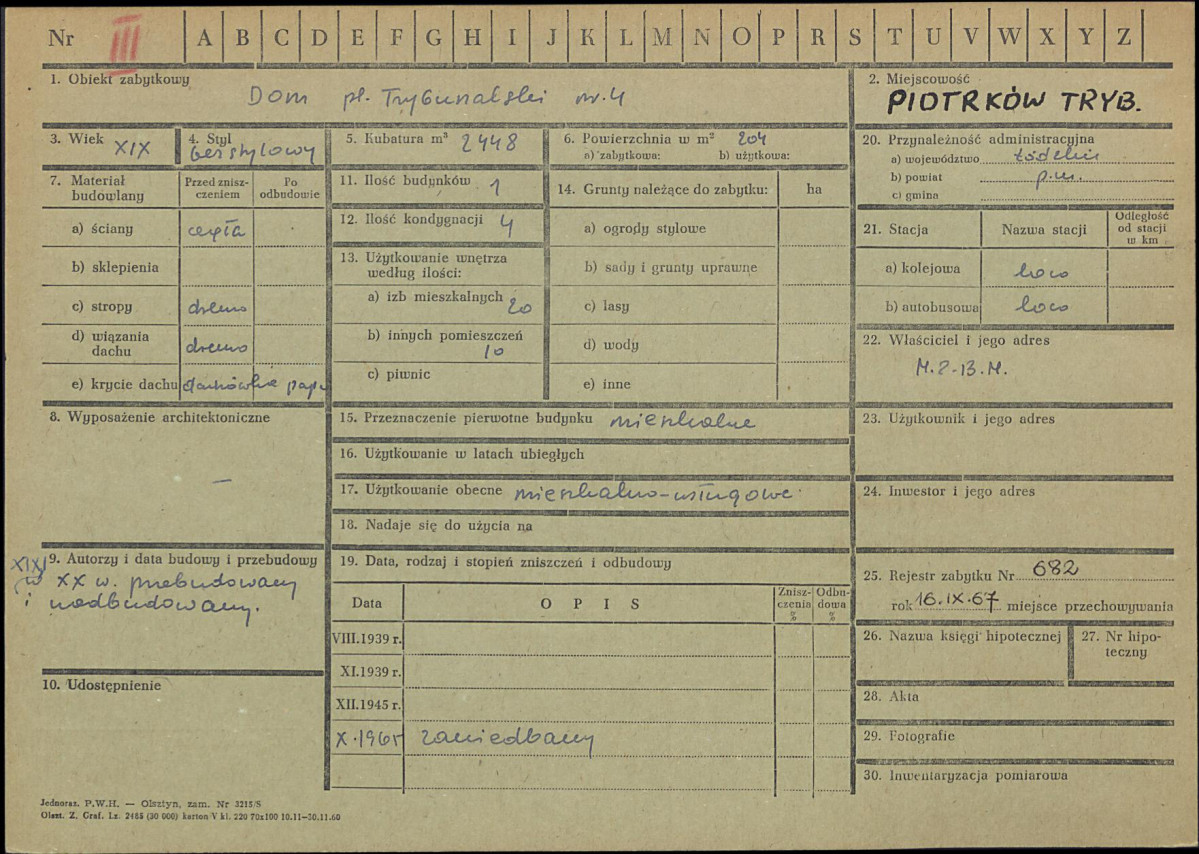 Nr III A B C D E F G H I J K L M N O P R S T U V W X Y Z
1. Obiekt zabytkowy
Dom pl. Trybunalski nr. 4
2. Miejscowość
PIOTRKÓW TRYB.
3. Wiek XIX
4. Styl bezstylowy
5. Kubatura m³ 2448
6. Powierzchnia w m² 204
a) zabytkowa: b) użytkowa:
7. Materiał budowlany
Przed zniszczeniem
Po odbudowie
a) ściany cegła
b) sklepienia
c) stropy drewno
d) wiązania dachu drewno
e) krycie dachu dachówka papa
8. Wyposażenie architektoniczne
–
9. Autorzy i data budowy i przebudowy
XIX
w XX w. przebudowany
i nadbudowany.
10. Udostępnienie
11. Ilość budynków 1
12. Ilość kondygnacji 4
13. Użytkowanie wnętrza
według ilości:
a) izb mieszkalnych 20
b) innych pomieszczeń
10
c) piwnic
14. Grunty należące do zabytku: ha
a) ogrody stylowe
b) sady i grunty uprawne
c) lasy
d) wody
e) inne
15. Przeznaczenie pierwotne budynku mieszkalne
16. Użytkowanie w latach ubiegłych
17. Użytkowanie obecne mieszkalno-usługowe
18. Nadaje się do użycia na
19. Data, rodzaj i stopień zniszczeń i odbudowy
Data
O P I S
Zniszczenia %
Odbudowa %
VIII.1939 r.
XI.1939 r.
XII.1945 r.
X.1965 zaniedbany
20. Przynależność administracyjna
a) województwo Łódzkie
b) powiat p.m.
c) gmina
21. Stacja
Nazwa stacji
Odległość
od stacji
w km
a) kolejowa loco
b) autobusowa loco
22. Właściciel i jego adres
M.Z.B.M.
23. Użytkownik i jego adres
24. Inwestor i jego adres
25. Rejestr zabytku Nr 682
rok 16.IX.67 miejsce przechowywania
26. Nazwa księgi hipotecznej
27. Nr hipoteczny
28. Akta
29. Fotografie
30. Inwentaryzacja pomiarowa
Jednoraz. P.W.H. — Olsztyn, zam. Nr 3215/S
Olszt. Z. Graf. Lz. 2485 (30 000) karton V kl. 220 70x100 10.11—30.11.60